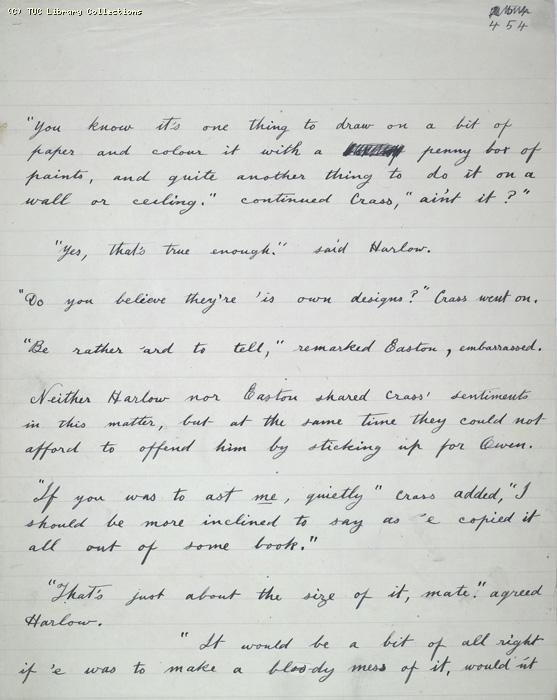 (C) TUC Library Collections
454
"You know it's one thing to draw on a bit of
paper and colour it with a penny box of
paints, and quite another thing to do it on a
wall or ceiling." continued Crass, "ain't it?"
"Yes, that's true enough." said Harlow.
"Do you believe they're 'is own designs?" Crass went on.
"Be rather 'ard to tell," remarked Easton, embarrassed.
Neither Harlow nor Easton shared Crass' sentiments
in this matter, but at the same time they could not
afford to offend him by sticking up for Owen.
"If you was to ast me, quietly" Crass added, "I
should be more inclined to say as 'e copied it
all out of some book."
"That's just about the size of it, mate." agreed
Harlow.
"It would be a bit of all right
if 'e was to make a bloody mess of it, would'nt